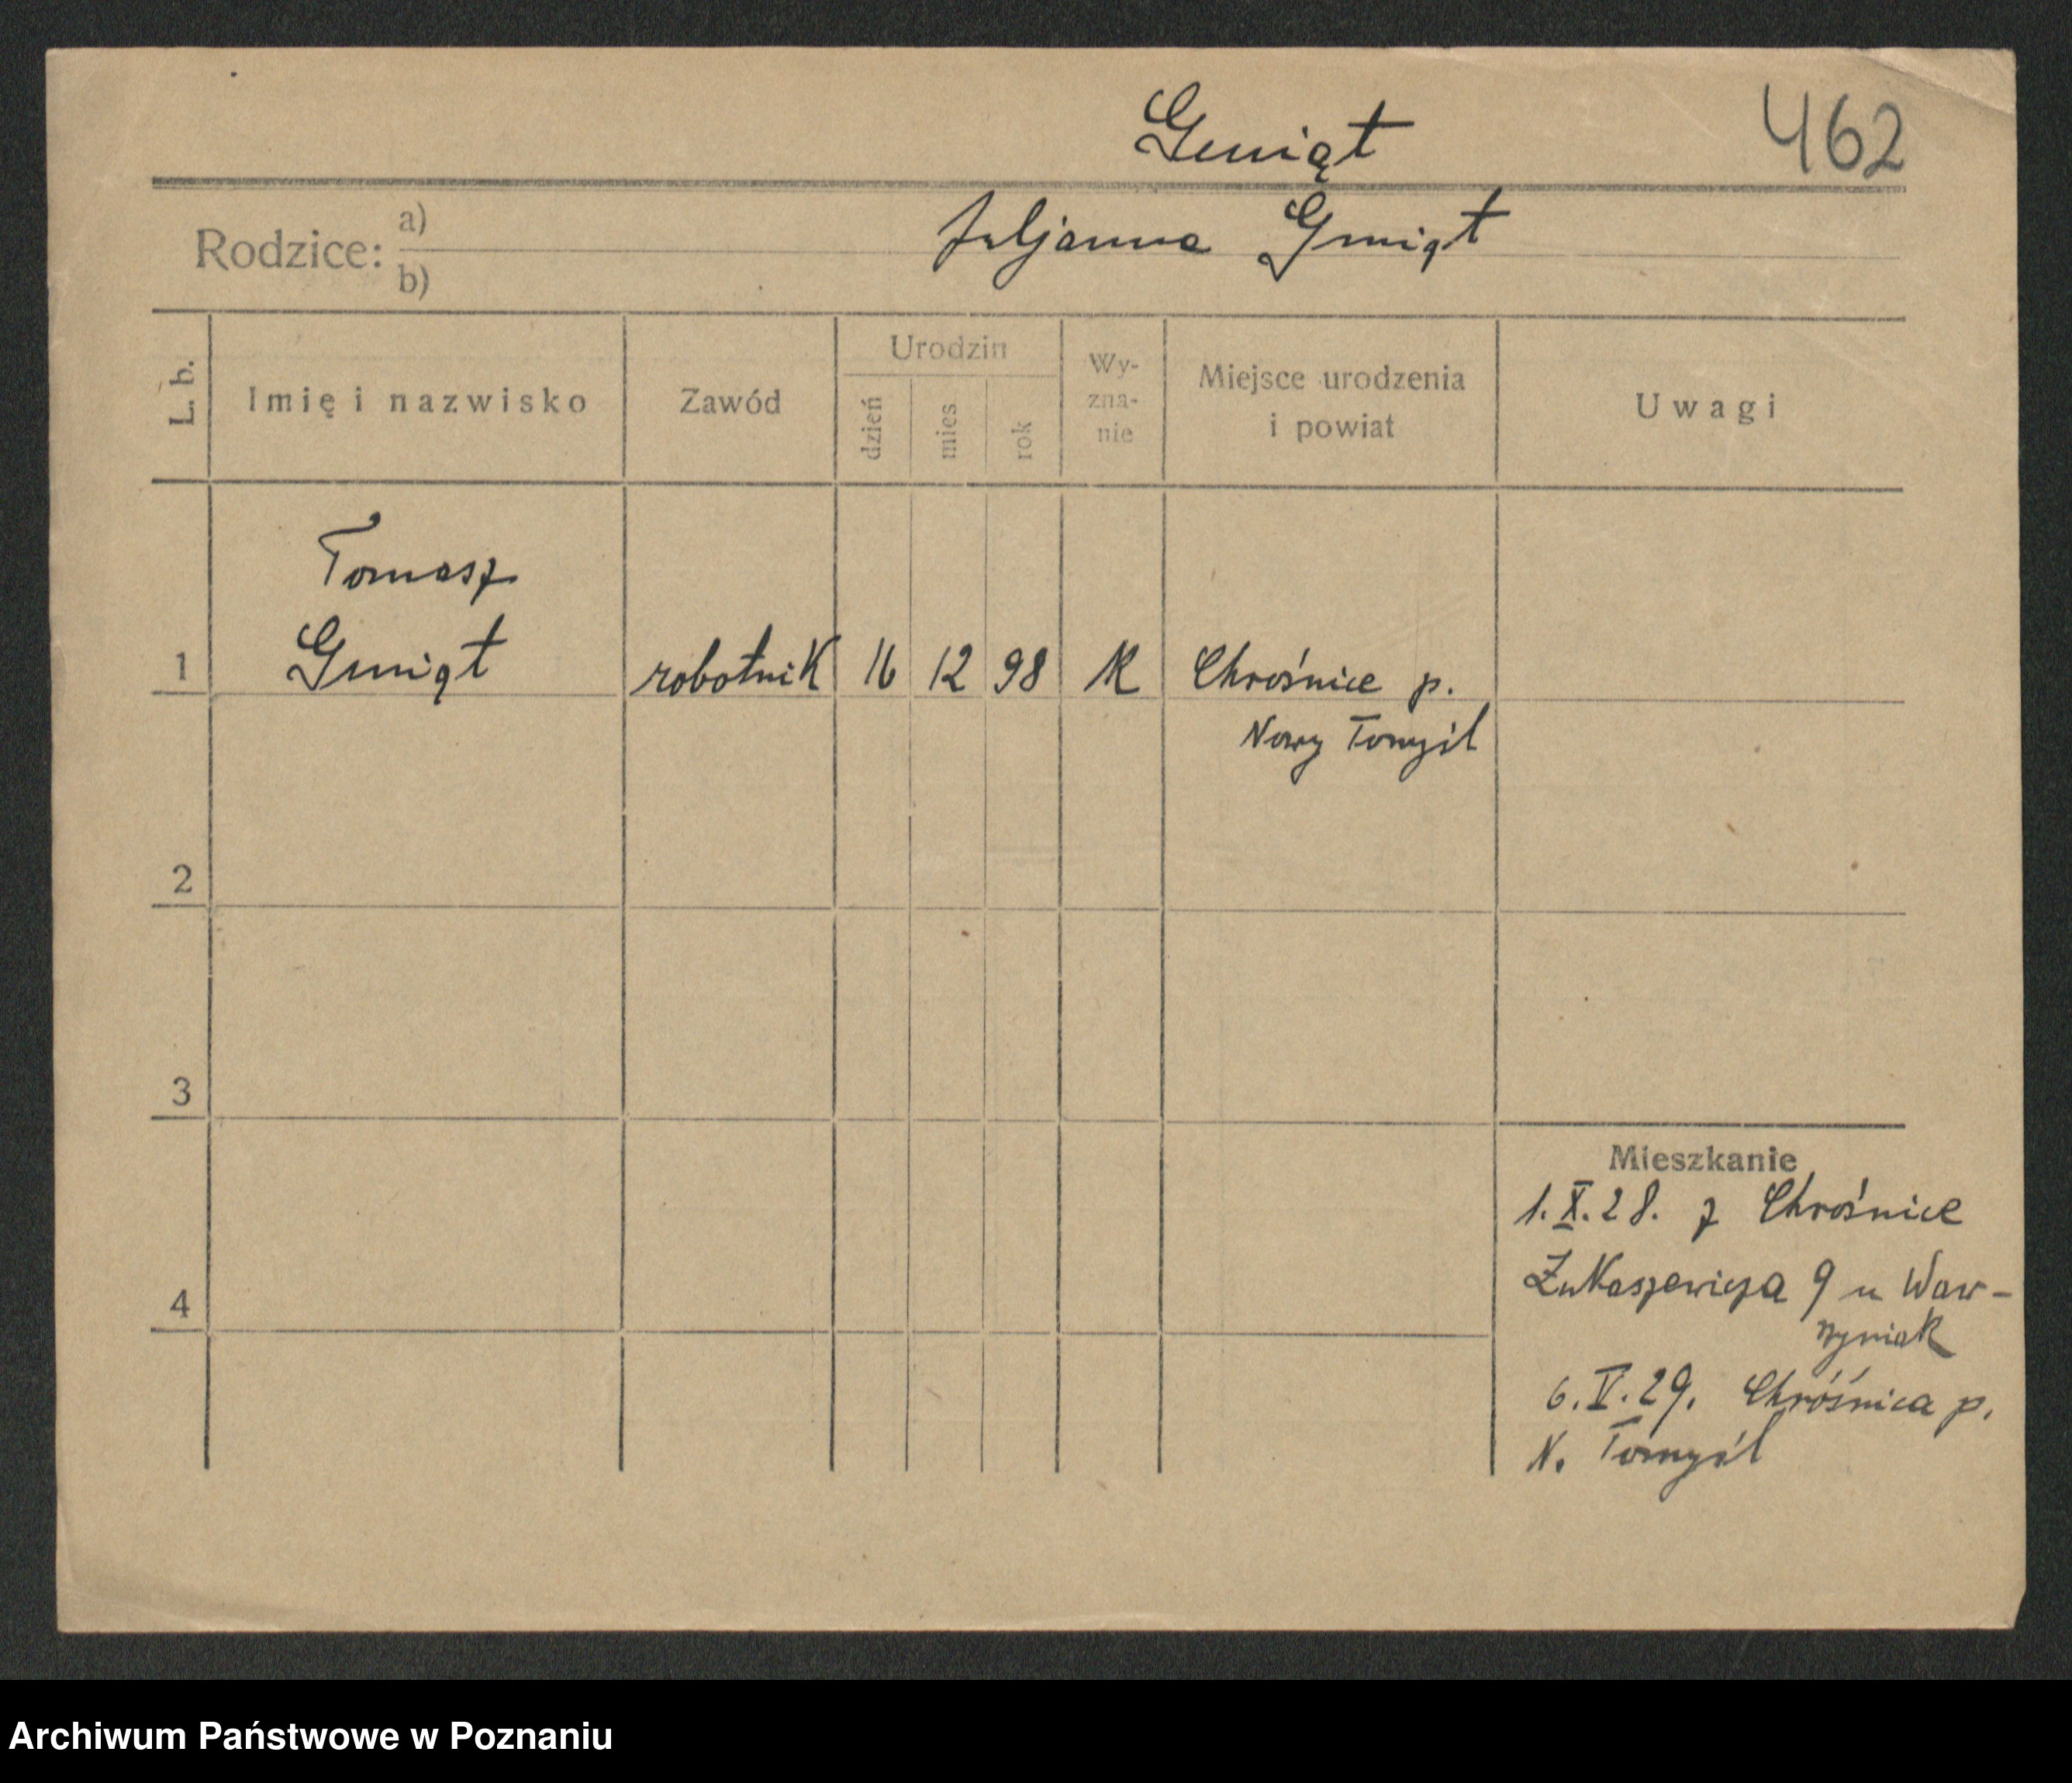 Gmiąt
462
Rodzice: a)
b)
Juljanna Gmiąt
L. b.
Imię i nazwisko
Zawód
Urodzin
dzień
mies
rok
Wy-
zna-
nie
Miejsce urodzenia
i powiat
Uwagi
Tomasz
1 Gmiąt robotnik 16 12 98 K Chrośnice p.
Nowy Tomyśl
2
3
4
Mieszkanie
1.X.28. z Chrośnice
Łukaszewicza 9 u Waw-
rzyniak
6.V.29. Chróśnica p.
N. Tomyśl
Archiwum Państwowe w Poznaniu